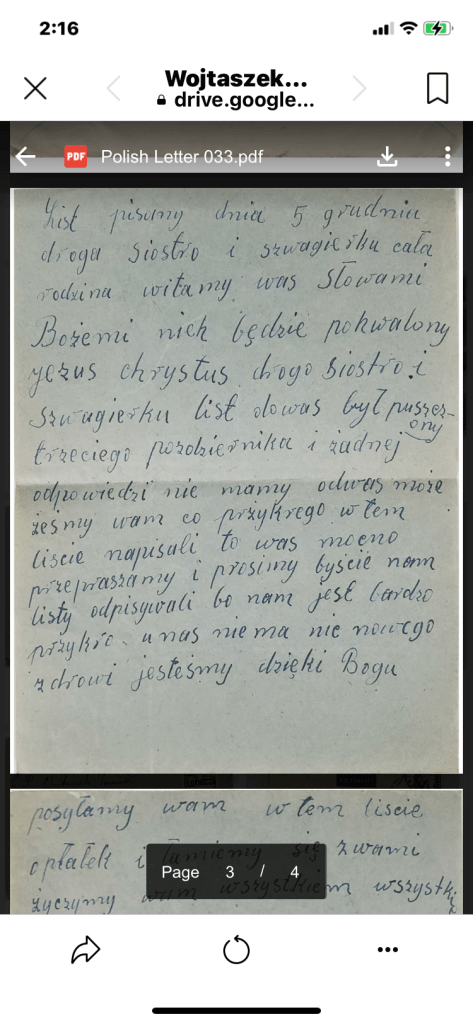 2:16
Wojtaszek...
drive.google...
PDF Polish Letter 033.pdf
List pisany dnia 5 grudnia
droga siostro i szwagierku cała
rodzina witamy was słowami
Bożemi niek będzie pokwalony
jezus chrystus drogo siostro i
szwagierku list dowas był puszcz-
ony
trzeciego pozdziernika i żadnej
odpowiedzi nie mamy odwas może
żeśmy wam co przykrego w tem
liscie napisali to was mocno
przepraszamy i prosimy byście nam
listy odpisywali bo nam jest bardzo
przykro. unas niema nic nowego
zdrowi jesteśmy dzięki Bogu
posyłamy wam w tem liscie
opłatek i łamiemy się zwami
życzymy wam wszystkiem wszystki
Page 3 / 4